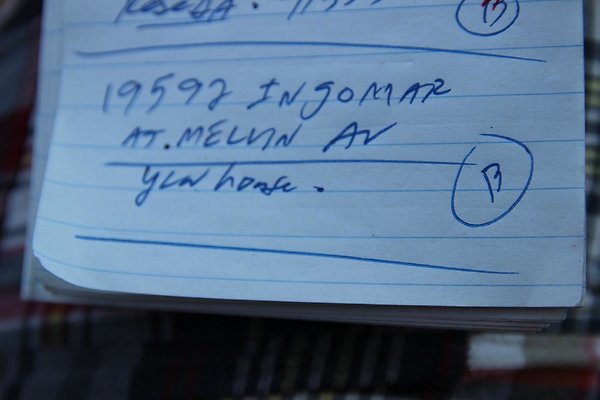 19592 INGOMAR
AT. MELVIN AV
YLW house.
B